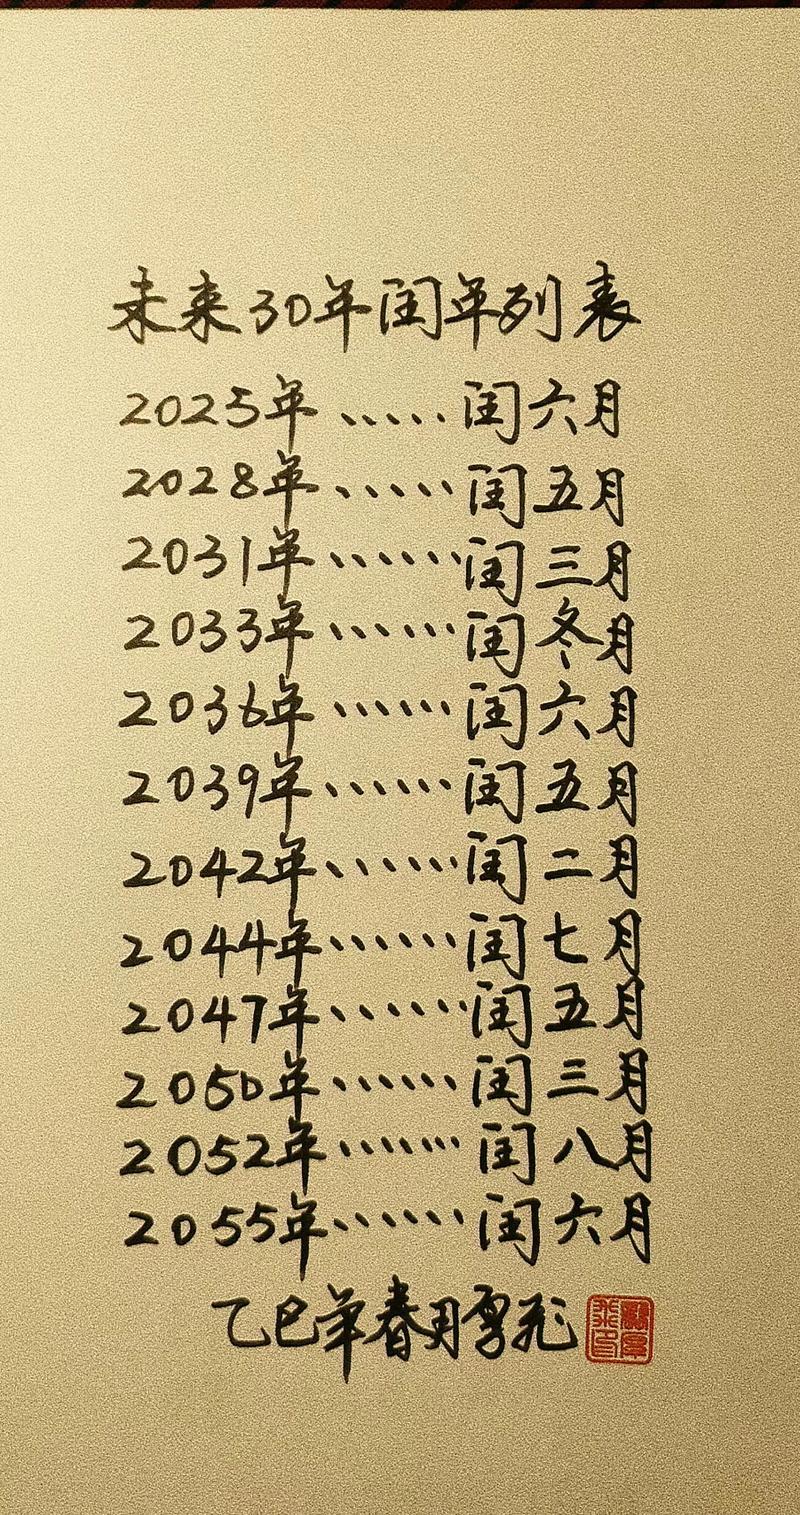 未来30年闰年列表
2025年……闰六月
2028年……闰五月
2031年……闰三月
2033年……闰冬月
2036年……闰六月
2039年……闰五月
2042年……闰二月
2044年……闰七月
2047年……闰五月
2050年……闰三月
2052年……闰八月
2055年……闰六月
乙巳年春月雪飞